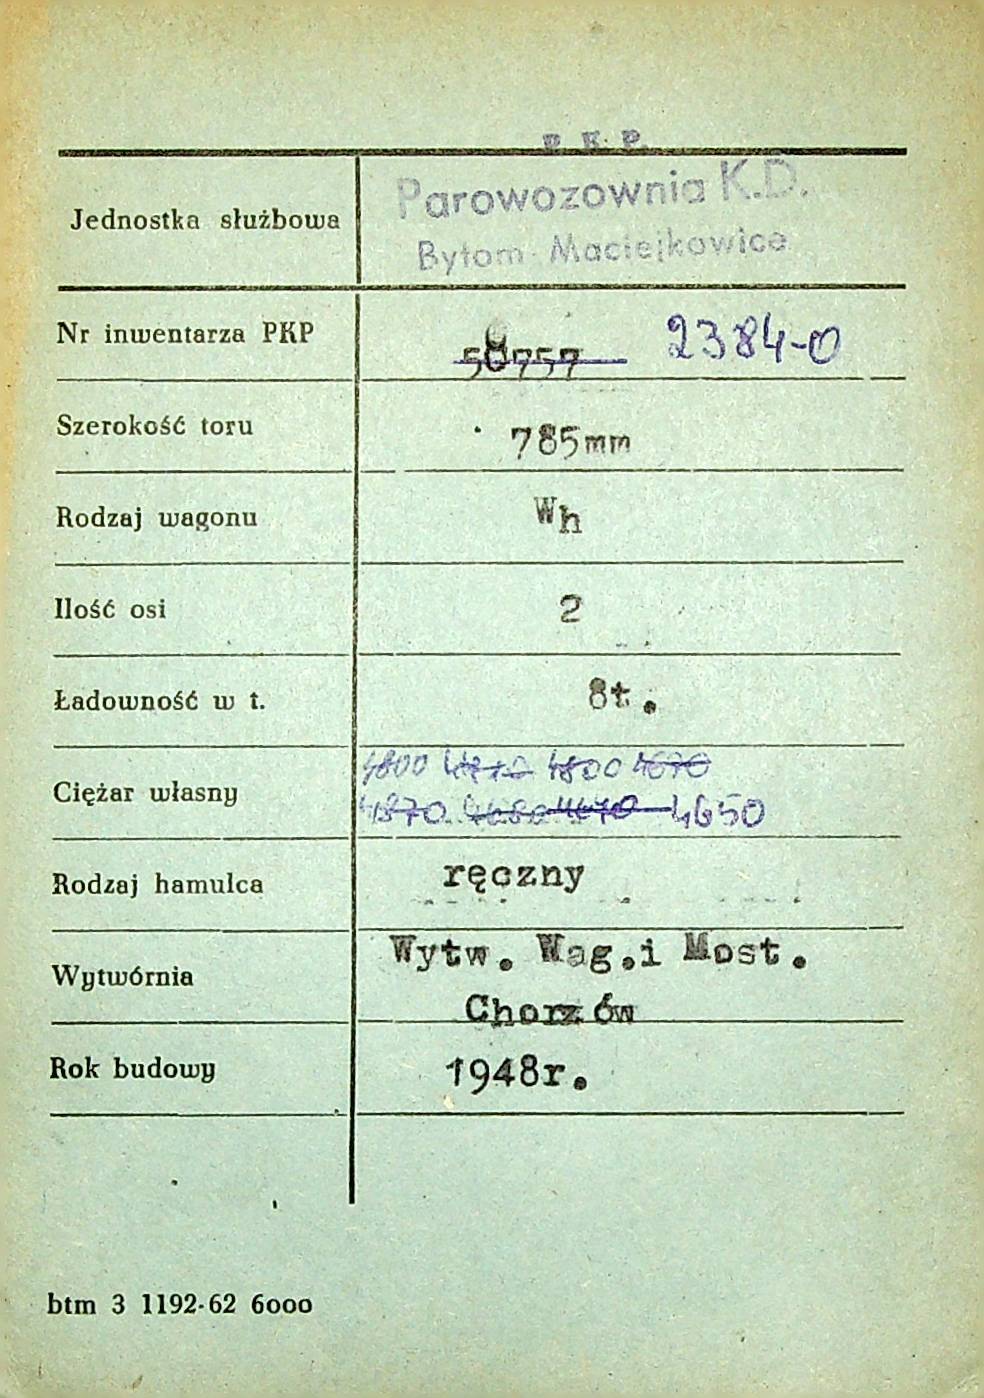 P. K. P.
Parowozownia K.D.
Bytom Maciejkowice
Jednostka służbowa
Nr inwentarza PKP 58757 2384-0
Szerokość toru 785mm
Rodzaj wagonu Wh
Ilość osi 2
Ładowność w t. 8t.
Ciężar własny 4800 4800 4670
4870 4680 4670 4650
Rodzaj hamulca ręczny
Wytwórnia Wytw. Wag.i Most.
Chorzów
Rok budowy 1948r.
btm 3 1192-62 6ooo